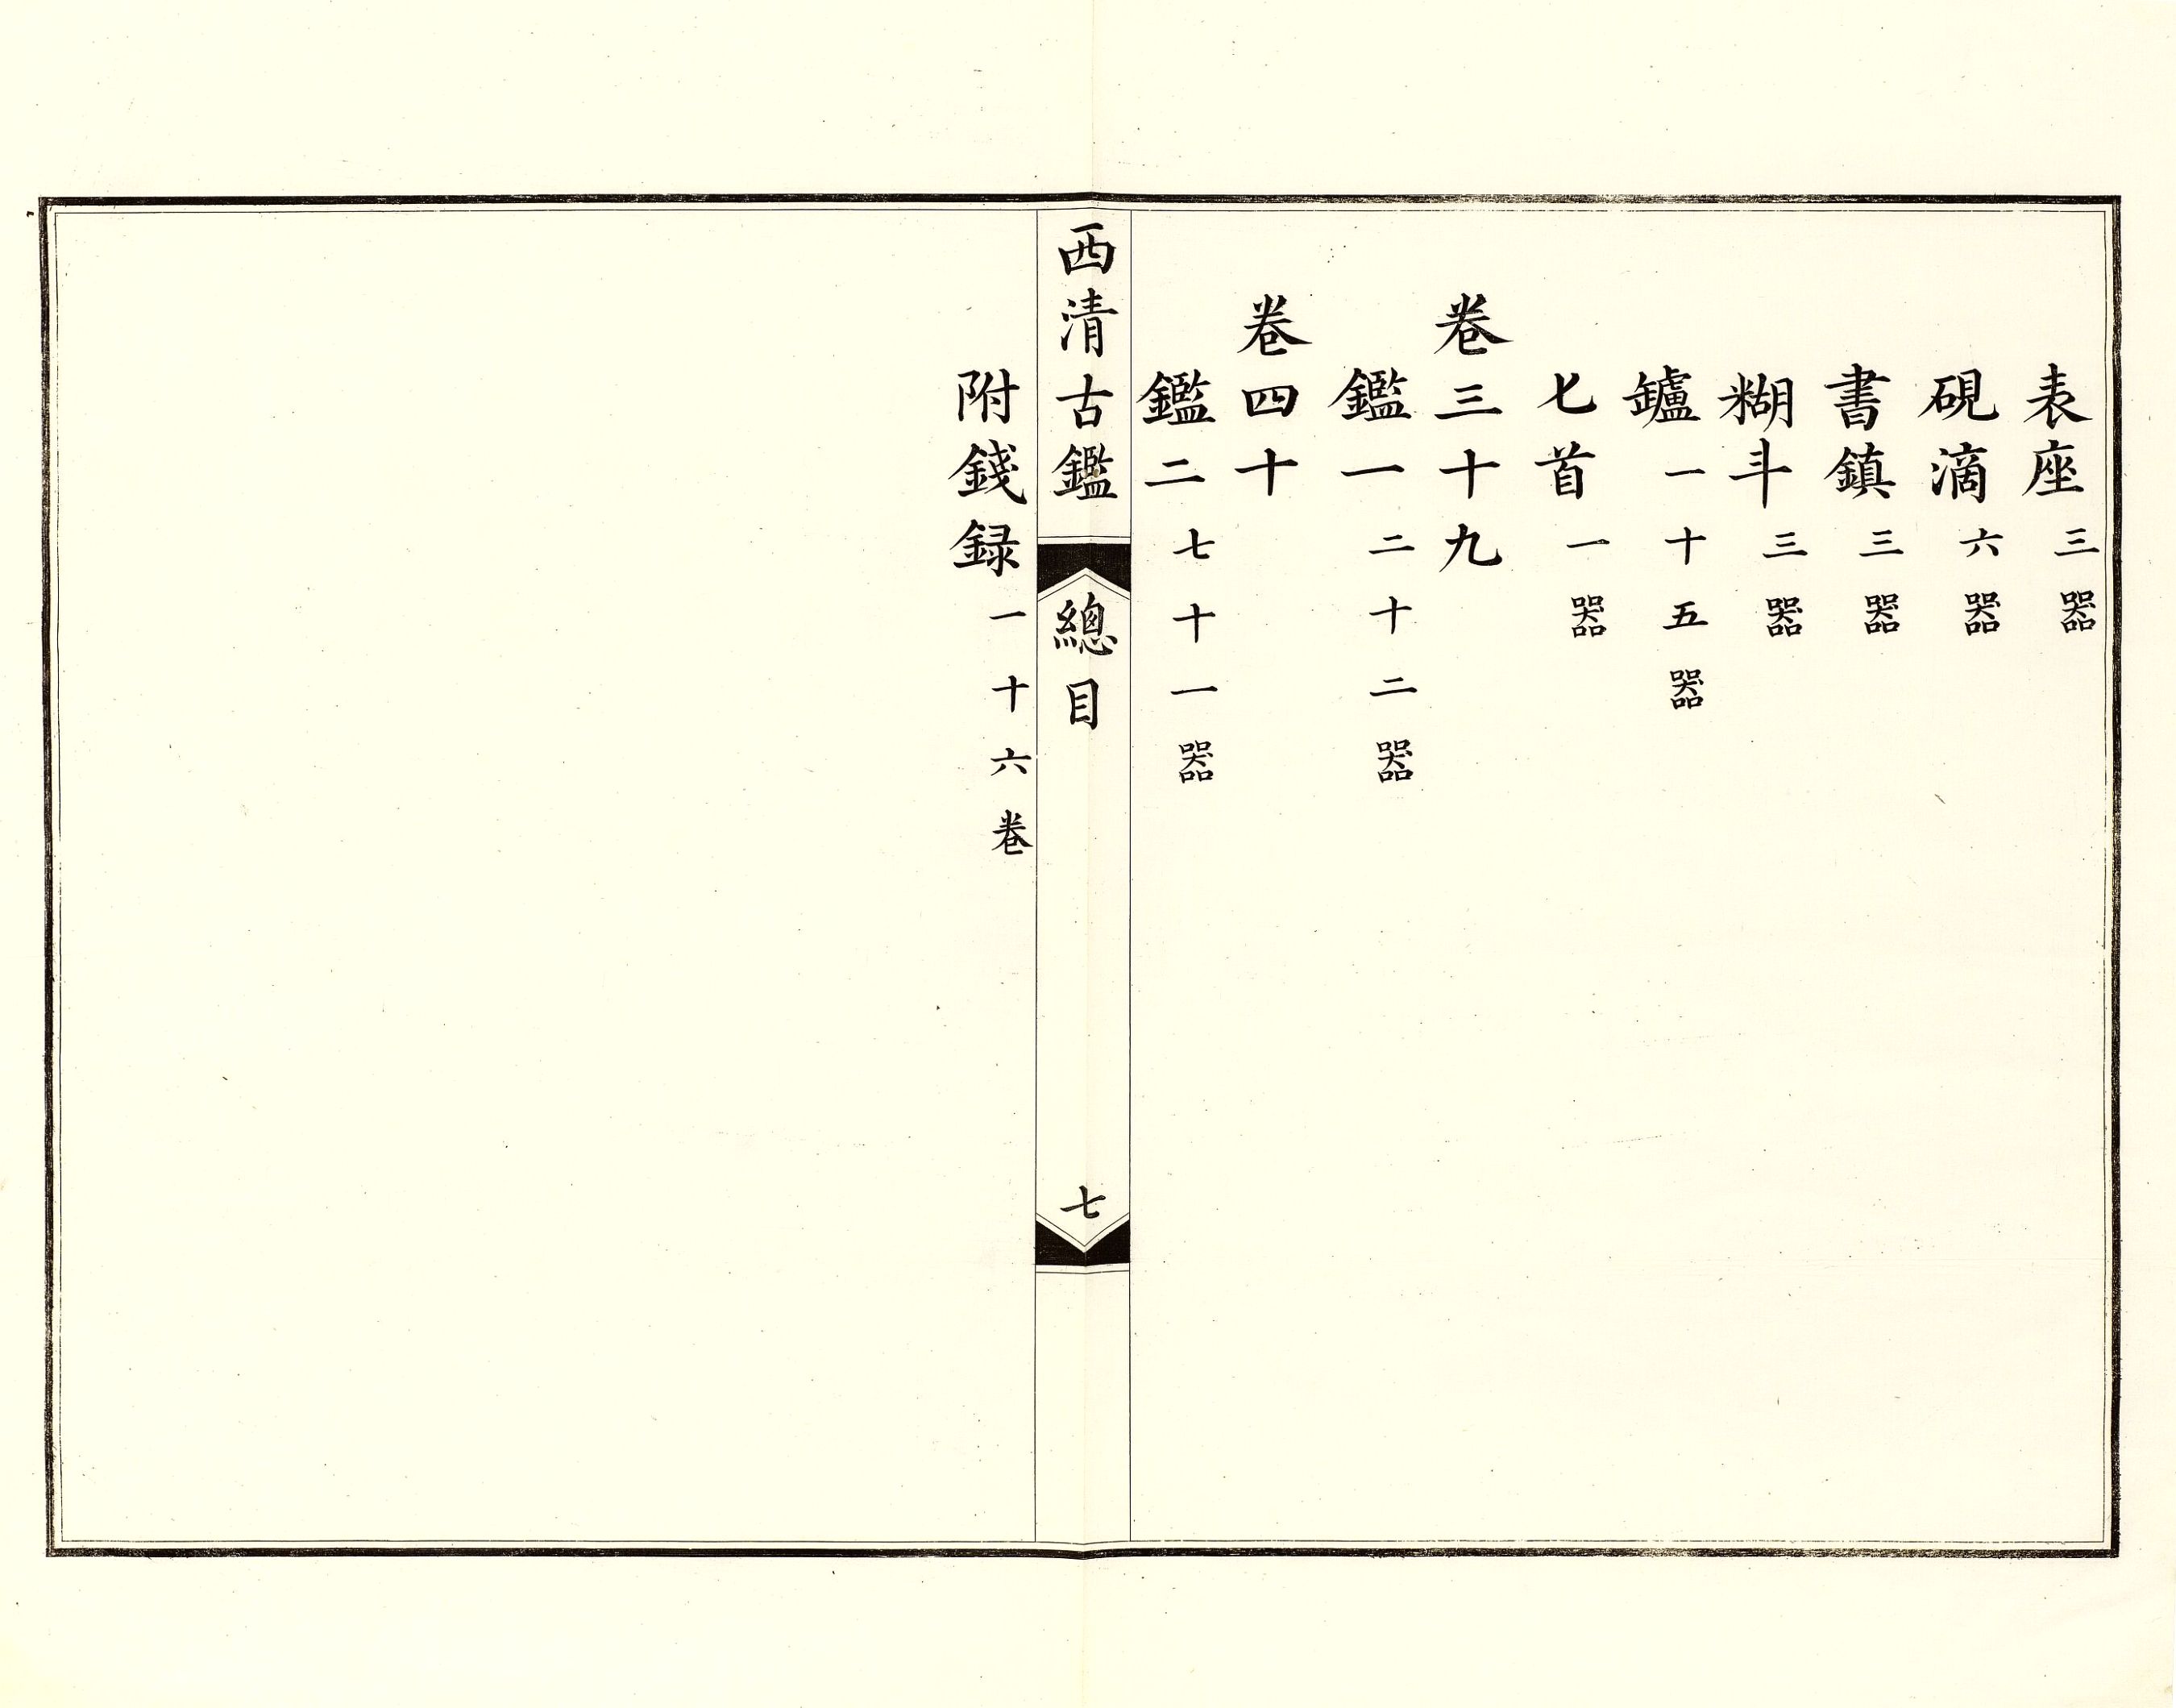 表座三器
硯滴六器
書鎮三器
糊斗三器
鑪一十五器
匕首一器
卷三十九
鑑一二十二器
卷四十
鑑二七十一器
西清古鑑
總目
七
附錢録一十六卷